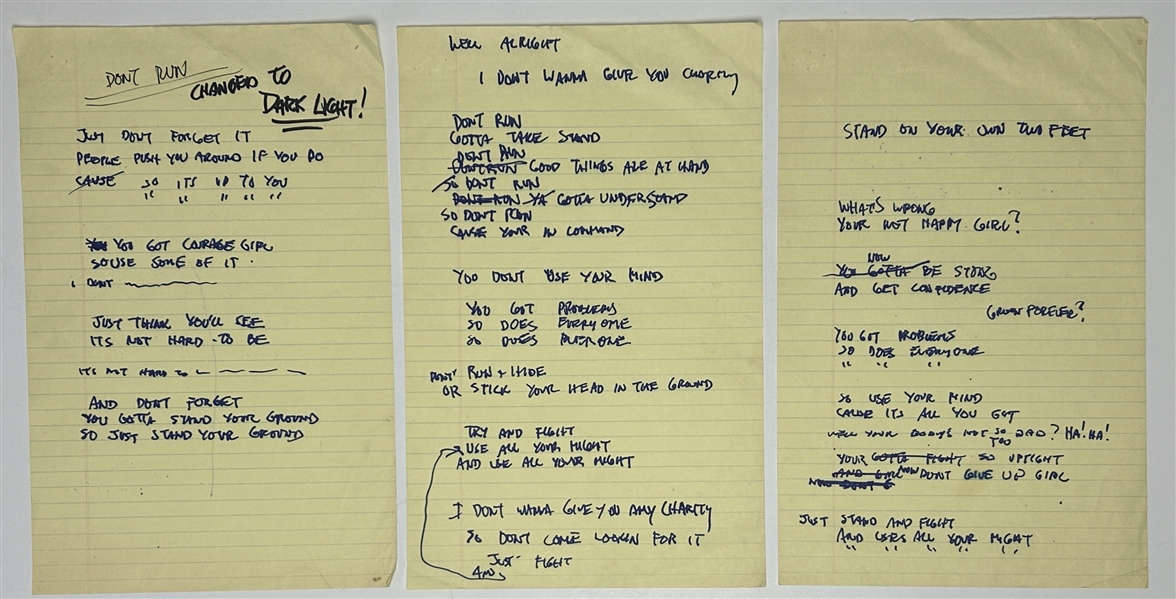 DONT RUN
CHANGED TO
DARK LIGHT!
JUST DONT FORGET IT
PEOPLE PUSH YOU AROUND IF YOU DO
CAUSE SO ITS UP TO YOU
" " " " "
YOU GOT COURAGE GIRL
SO USE SOME OF IT.
I DONT
JUST THINK YOU'LL SEE
ITS NOT HARD - TO BE
ITS NOT HARD TO
AND DONT FORGET
YOU GOTTA STAND YOUR GROUND
SO JUST STAND YOUR GROUND
WELL ALRIGHT
I DONT WANNA GIVE YOU CHARITY
DONT RUN
GOTTA TAKE STAND
DONT RUN
DONT RUN GOOD THINGS ARE AT HAND
SO DONT RUN
DONT RUN YA GOTTA UNDERSTAND
SO DONT RUN
CAUSE YOUR IN COMMAND
YOU DONT USE YOUR MIND
YOU GOT PROBLEMS
SO DOES EVERYONE
SO DOES EVERYONE
DONT RUN + HIDE
OR STICK YOUR HEAD IN THE GROUND
TRY AND FIGHT
USE ALL YOUR MIGHT
AND USE ALL YOUR MIGHT
I DONT WANNA GIVE YOU ANY CHARITY
SO DONT COME LOOKIN FOR IT
JUST FIGHT
AND
STAND ON YOUR OWN TWO FEET
WHAT'S WRONG
YOUR NOT HAPPY GIRL?
NOW
YOU GOTTA BE STRONG
AND GET CONFIDENCE
FOREVER?
YOU GOT PROBLEMS
SO DOES EVERYONE
" " "
SO USE YOUR MIND
CAUSE ITS ALL YOU GOT
WELL YOUR BODY'S NOT SO BAD? HA! HA!
TOO
YOUR GOTTA FIGHT SO UPTIGHT
AND GIRL NOW DONT GIVE UP GIRL
NOW DONT G
JUST STAND AND FIGHT
AND USES ALL YOUR MIGHT
" " " " "